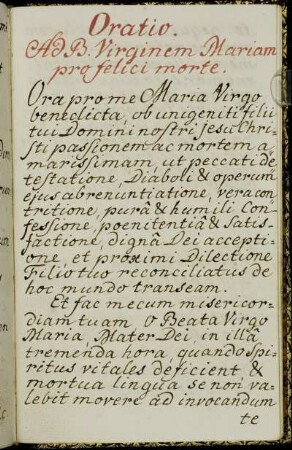 Oratio.
Ad B. Virginem Mariam
pro felici morte.
Ora pro me Maria Virgo
benedicta, ob unigeniti filii
tui Domini nostri Jesu Chri-
sti passionem ac mortem a
marissimam, ut peccati de
testatione, Diaboli & operum
ejus abrenuntiatione, vera con
tritione, purâ & humili Con-
fessione, poenitentiâ & satis-
factione, dignâ Dei accepti-
one, et proximi Dilectione
Filio tuo reconciliatus de
hoc mundo transeam.
Et fac mecum misericor-
diam tuam, O Beata Virgo
Maria, Mater Dei, in illâ
tremenda hora, quando Spi-
ritus vitales deficient, &
mortua lingua se non va-
lebit movere ad invocandum
te